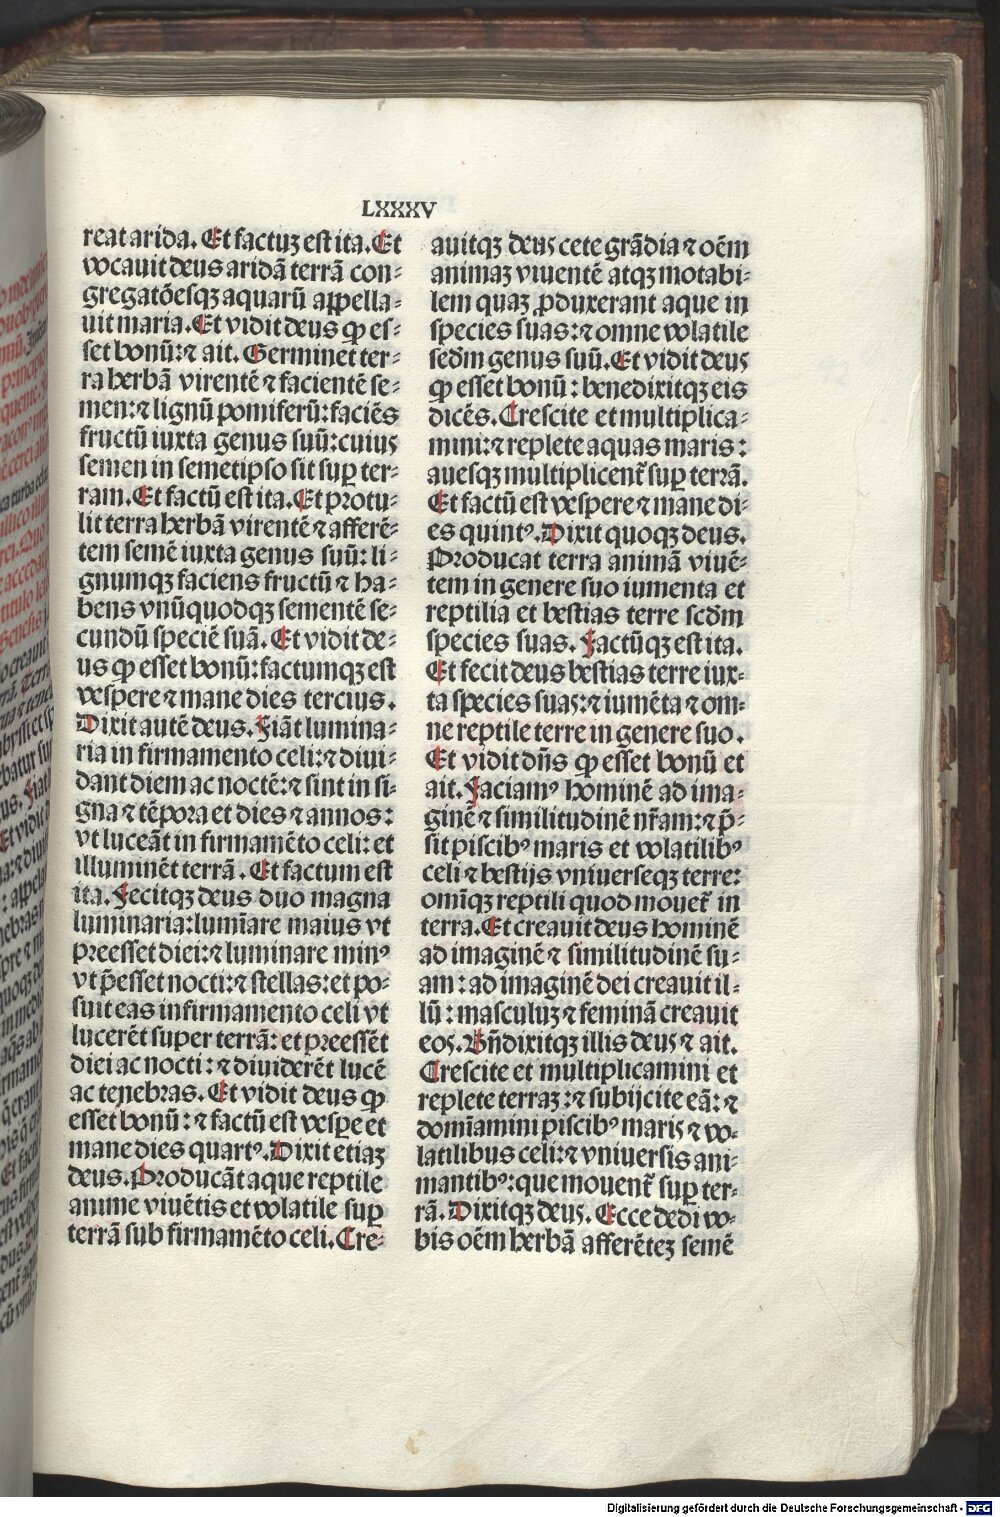 LXXXV
reat arida. Et factuꝫ est ita. Et
vocauit deus aridā terrā con⸗
gregatōesqꝫ aquarū appella⸗
uit maria. Et vidit deus ꝙ es⸗
set bonū: ⁊ ait. Germinet ter⸗
ra herbā virentē ⁊ facientē se⸗
men: ⁊ lignū pomiferū: faciēs
fructū iuxta genus suū: cuius
semen in semetipso sit suꝑ ter⸗
ram. Et factū est ita. Et protu⸗
lit terra herbā virentē ⁊ afferē⸗
tem semē iuxta genus suū: li⸗
gnumqꝫ faciens fructū ⁊ ha⸗
bens vnūquodqꝫ sementē se⸗
cundū speciē suā. Et vidit de⸗
us ꝙ esset bonū: factumqꝫ est
vespere ⁊ mane dies tercius.
Dixit autē deus. Fiāt lumina⸗
ria in firmamento celi: ⁊ diui⸗
dant diem ac noctē: ⁊ sint in si⸗
gna ⁊ tēpora et dies ⁊ annos:
vt luceāt in firmamēto celi: et
illuminēt terrā. Et factum est
ita. Fecitqꝫ deus duo magna
luminaria: lumīare maius vt
preesset diei: ⁊ luminare minꝰ
vt p̄esset nocti: ⁊ stellas: et po⸗
suit eas in firmamento celi vt
lucerēt super terrā: et preessēt
diei ac nocti: ⁊ diuiderēt lucē
ac tenebras. Et vidit deus ꝙ
esset bonū: ⁊ factū est vesꝑe et
mane dies quartꝰ. Dixit etiaꝫ
deus. Producāt aque reptile
anime viuētis et volatile suꝑ
terrā sub firmamēto celi. Cre⸗
auitqꝫ deus cete grādia ⁊ oēm
animaꝫ viuentē atqꝫ motabi⸗
lem quaꝫ ꝓduxerant aque in
species suas: ⁊ omne volatile
secdm genus suū. Et vidit deus
ꝙ esset bonū: benedixitqꝫ eis
dicēs. Crescite et multiplica⸗
mini: ⁊ replete aquas maris:
auesqꝫ multiplicent᷑ suꝑ terrā.
Et factū est vespere ⁊ mane di⸗
es quintꝰ. Dixit quoqꝫ deus.
Producat terra animā viuē⸗
tem in genere suo iumenta et
reptilia et bestias terre scdm
species suas. Factūqꝫ est ita.
Et fecit deus bestias terre iux⸗
ta species suas: ⁊ iumēta ⁊ om⸗
ne reptile terre in genere suo.
Et vidit dn̄s ꝙ esset bonū et
ait. Faciamꝰ hominē ad ima⸗
ginē ⁊ similitudinē nr̄am: ⁊ p̄⸗
sit piscibꝰ maris et volatilibꝰ
celi ⁊ bestijs vniuerseqꝫ terre:
omīqꝫ reptili quod mouet᷑ in
terra. Et creauit deus hominē
ad imaginē ⁊ similitudinē su⸗
am: ad imaginē dei creauit il⸗
lū: masculuꝫ ⁊ feminā creauit
eos. Bn̄dixitqꝫ illis deus ⁊ ait.
Crescite et multiplicamini et
replete terraꝫ: ⁊ subijcite eā: ⁊
domīamini piscibꝰ maris ⁊ vo⸗
latilibus celi: ⁊ vniuersis ani⸗
mantibꝰ: que mouent᷑ suꝑ ter⸗
rā. Dixitqꝫ deus. Ecce dedi vo⸗
bis oēm herbā afferēteꝫ semē
Digitalisierung gefördert durch die Deutsche Forschungsgemeinschaft - DFG